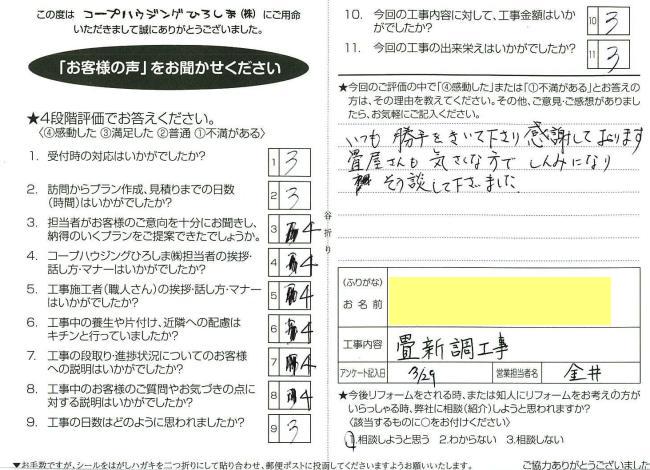 この度は コープハウジングひろしま(株) にご用命
いただきまして誠にありがとうございました。
「お客様の声」をお聞かせください
★4段階評価でお答えください。
〈④感動した ③満足した ②普通 ①不満がある〉
1. 受付時の対応はいかがでしたか?
1 3
2. 訪問からプラン作成、見積りまでの日数
(時間)はいかがでしたか?
2 3
3. 担当者がお客様のご意向を十分にお聞きし、
納得のいくプランをご提案できたでしょうか。
3 4
4. コープハウジングひろしま㈱担当者の挨拶・
話し方・マナーはいかがでしたか?
4 4
5. 工事施工者(職人さん)の挨拶・話し方・マナー
はいかがでしたか?
5 4
6. 工事中の養生や片付け、近隣への配慮は
キチンと行っていましたか?
6 4
7. 工事の段取り・進捗状況についてのお客様
への説明はいかがでしたか?
7 4
8. 工事中のお客様のご質問やお気づきの点に
対する説明はいかがでしたか?
8 4
9. 工事の日数はどのように思われましたか?
9 3
谷折り
10. 今回の工事内容に対して、工事金額はいか
がでしたか?
10 3
11. 今回の工事の出来栄えはいかがでしたか?
11 3
★今回のご評価の中で「④感動した」または「①不満がある」とお答え
の方は、その理由を教えてください。その他、ご意見・ご感想がありまし
たら、お気軽にご記入ください。
いつも 勝手をきいて下さり 感謝しております
畳屋さんも 気さくな方で しんみになり
そう談して下さいました
(ふりがな)
お名前
工事内容 畳新調工事
アンケート記入日 3/29 営業担当者名 金井
★今後リフォームをされる時、または知人にリフォームをお考えの方が
いらっしゃる時、弊社に相談(紹介)しようと思われますか?
〈該当するものに○をお付けください〉
1.相談しようと思う 2.わからない 3.相談しない
▼お手数ですが、シールをはがしハガキを二つ折りにして貼り合わせ、郵便ポストに投函してくださいますようお願いいたします。
ご協力ありがとうございました